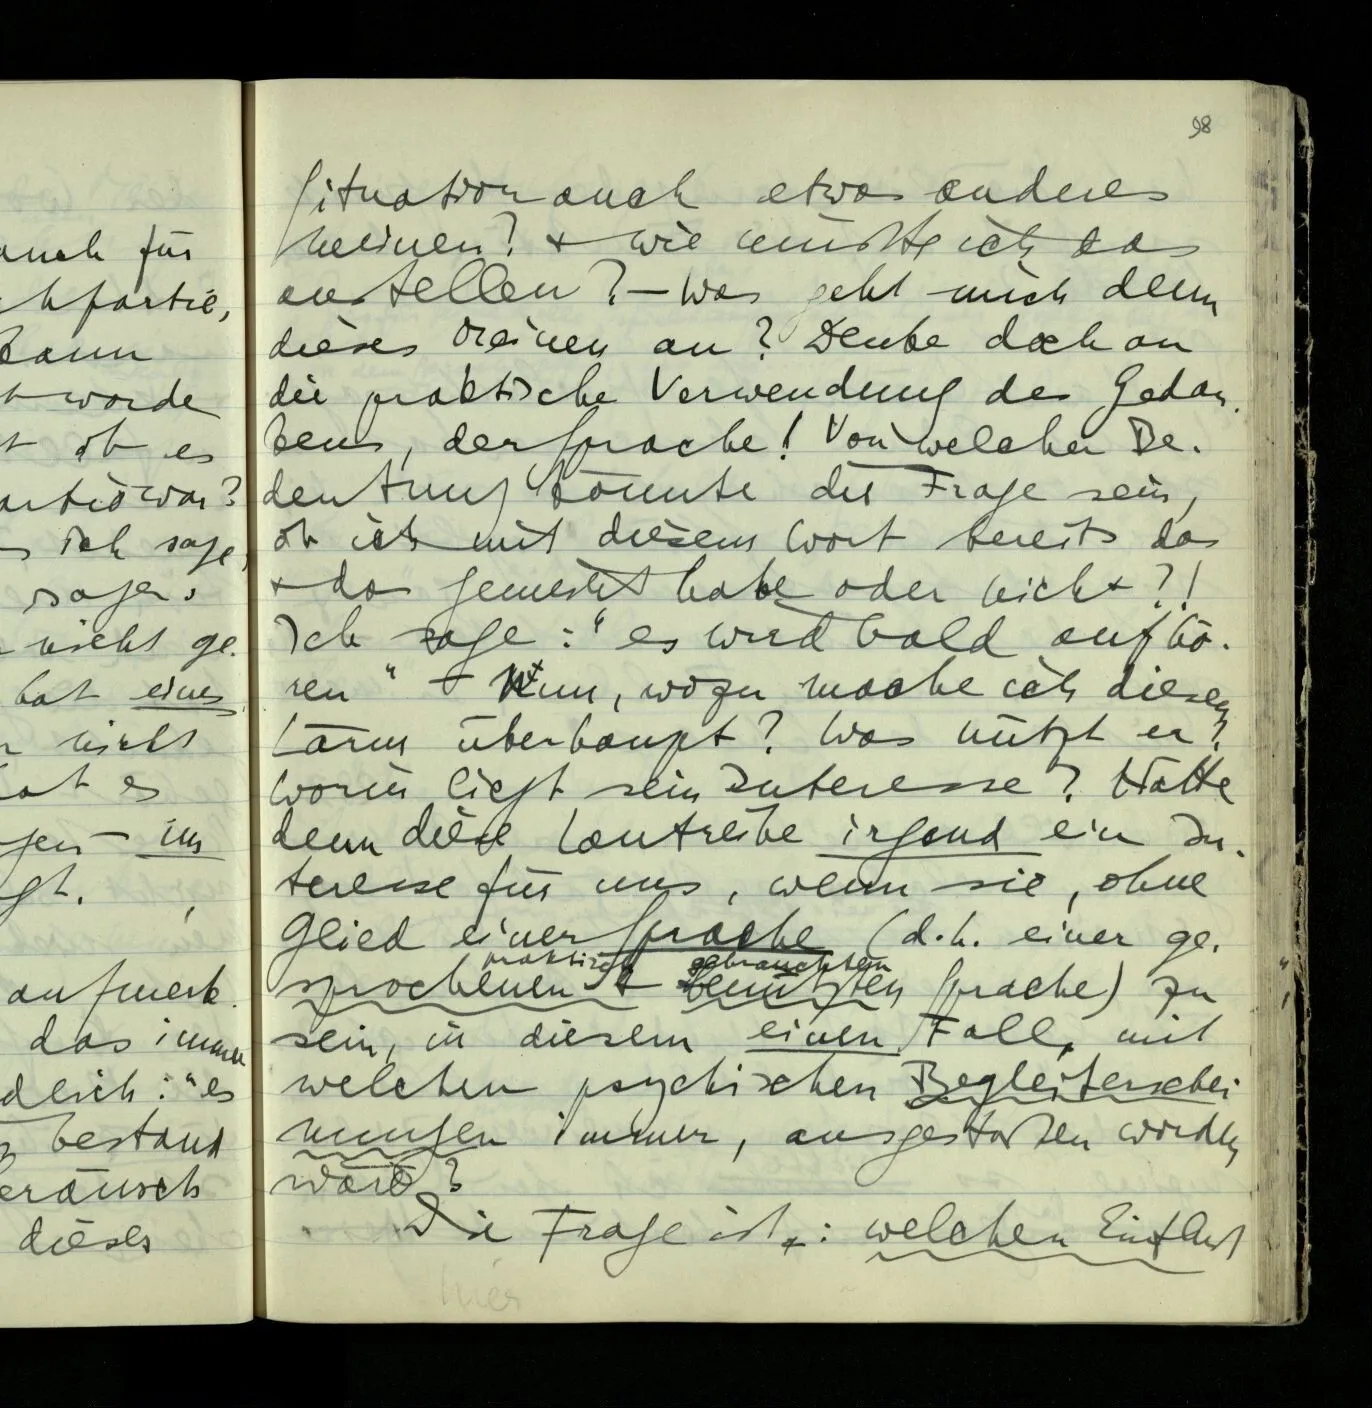 auch für
hpartie,
kann
t worde
st ob es
artie war?
s ich sage,
sagen.
nicht ge-
hat eines
r nicht
hat es
gen — im
gt.
aufmerk-
das immer
dlich: "es
bestand
eräusch
dieses
98
Situation auch etwas anderes
meinen? + wie müßte ich das
anstellen? — Was geht mich denn
dieses Meinen an? Denke doch an
die praktische Verwendung des Gedan-
kens, der Sprache! Von welcher Be-
deutung könnte die Frage sein,
ob ich mit diesem Wort bereits das
+ das gemeint habe oder nicht?!
Ich sage: "es wird bald aufhö-
ren" — Nun, wozu mache ich diesen
Lärm überhaupt? Was nützt er?
Worin liegt sein Interesse? Hätte
denn diese Lautreihe irgend ein In-
teresse für uns, wenn sie, ohne
Glied einer Sprache (d.h. einer ge-
praktisch gebrauchten
sprochenen + benützten Sprache) zu
sein, in diesem einen Fall, mit
welchen psychischen Begleiterschei
nungen immer, ausgestoßen worden
wäre?
Die Frage ist: welchen Einfluß
hier